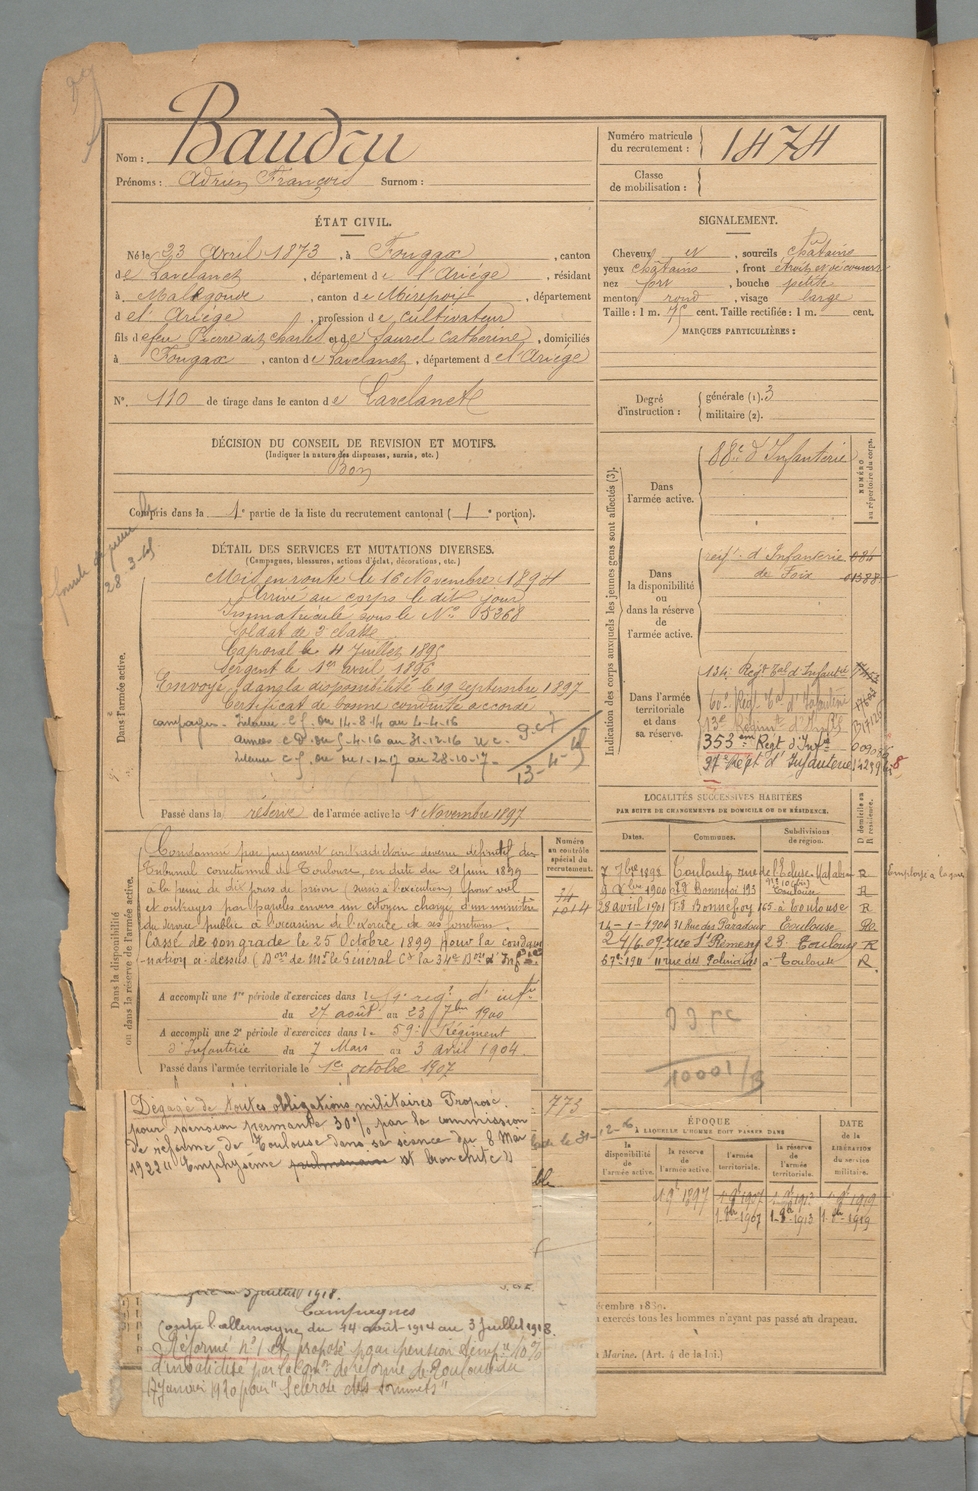 Nom : Baudru
Prénoms : Adrien François Surnom :
Numéro matricule du recrutement : 1474
Classe de mobilisation :
ÉTAT CIVIL.
Né le 23 Avril 1873, à Fougax, canton
de Lavelanet, département de l'Ariége, résidant
à Malegoude, canton de Mirepoix, département
d e l'Ariége, profession de cultivateur
fils de feu Pierre dit Charles et de Laurel Catherine, domiciliés
à Fougax, canton de Lavelanet, département de l'Ariége
N° 110 de tirage dans le canton de Lavelanet
SIGNALEMENT.
Cheveux et, sourcils châtains
yeux châtains, front étroit et découvert
nez fort, bouche petite
menton rond, visage large
Taille : 1 m. cent. Taille rectifiée : 1 m. cent.
MARQUES PARTICULIÈRES :
Degré d'instruction : générale (1). 3
militaire (2).
DÉCISION DU CONSEIL DE REVISION ET MOTIFS.
(Indiquer la nature des dispenses, sursis, etc.)
Bon
Compris dans la 1e partie de la liste du recrutement cantonal ( 1 e portion).
28-3-
DÉTAIL DES SERVICES ET MUTATIONS DIVERSES.
(Campagnes, blessures, actions d'éclat, décorations, etc.)
Dans l'armée active.
Mis en route le 16 Novembre 1894
Arrivé au corps le dit jour
Immatriculé sous le N° 5368
Soldat de 2e classe
Caporal le 4 Juillet 1895
Sergent le 1er avril 1896
Envoyé dans la disponibilité le 19 septembre 1897
Certificat de bonne conduite accordé
campagnes - Interieur c.f. du 14-8-14 au 4-4-16
Armées c D. du 5-4-16 au 31-12-16
Interieur c f. du 1-1-17 au 28-10-17
Passé dans la réserve de l'armée active le 1er Novembre 1897
Indication des corps auxquels les jeunes gens sont affectés (3).
NUMÉRO au répertoire du corps.
Dans l'armée active.
88e d'Infanterie
Dans la disponibilité ou dans la réserve de l'armée active.
regt d'Infanterie
de Foix
Dans l'armée territoriale et dans sa réserve.
134e Regt Tal d'Infanterie
60e Régt Tal d'Infanterie
13e Régiment d'Inf
353ème Régt d'Infrie
Régt d'Infanterie
LOCALITÉS SUCCESSIVES HABITÉES
PAR SUITE DE CHANGEMENTS DE DOMICILE OU DE RÉSIDENCE.
Dates. Communes. Subdivisions de région. D domicile ou R résidence.
7 7bre 1898 Toulouse rue de l'Ecluse R
1900 Bonnefoi 193 Toulouse R
28 avril 1901 Fg Bonnefoy 165 à Toulouse R
14-1-1904 31 Rue des Paradoux Toulouse
24/6 09 rue St Remesy 23 Toulouse R
1911 11 rue des Polinaires à Toulouse R.
Dans la disponibilité ou dans la réserve de l'armée active.
Numéro au contrôle spécial du recrutement.
Condamné par jugement contradictoire devenu définitif du
Tribunal correctionnel de Toulouse, en date du 21 juin 1899
à la peine de dix jours de prison (sursis à l'exécution) pour vol
et outrages par paroles envers un citoyen chargé d'un ministère
du service public à l'occasion de l'exercice de ses fonctions.
Cassé de son grade le 25 Octobre 1899 pour la condam
-nation ci-dessus (Don de Mr le Général Ct la 34e Don d'Infrie
A accompli une 1re période d'exercices dans l e 59e regt d'infie
du 27 août au 23 7bre 1900
A accompli une 2e période d'exercices dans l e 59e Régiment
d'Infanterie du 7 Mars au 3 avril 1904.
Passé dans l'armée territoriale le 1er octobre 1907
10001/B
773
Dégagé de toutes obligations militaires. Proposé
pour pension permante 30% par la commission
de réforme de Toulouse dans sa seance du 8 Mai
1922 "Emphysème pulmonaire et bronchite"
ÉPOQUE
À LAQUELLE L'HOMME DOIT PASSER DANS
la disponibilité de l'armée active.
la réserve de l'armée active.
l'armée territoriale.
la réserve de l'armée territoriale.
DATE de la LIBÉRATION du service militaire.
3 juillet 1918.
Campagnes
Contre l'allemagne du 14 août 1914 au 3 Juillet 1918.
Réformé n°1 et proposé pour pension temp re 10%
d'invalidité par la Com on de réforme de Toulouse du
17 Janvier 1920 pour "Sclérose des sommets"
exercés tous les hommes n'ayant pas passé au drapeau.
Marine. (Art. 4 de la loi.)